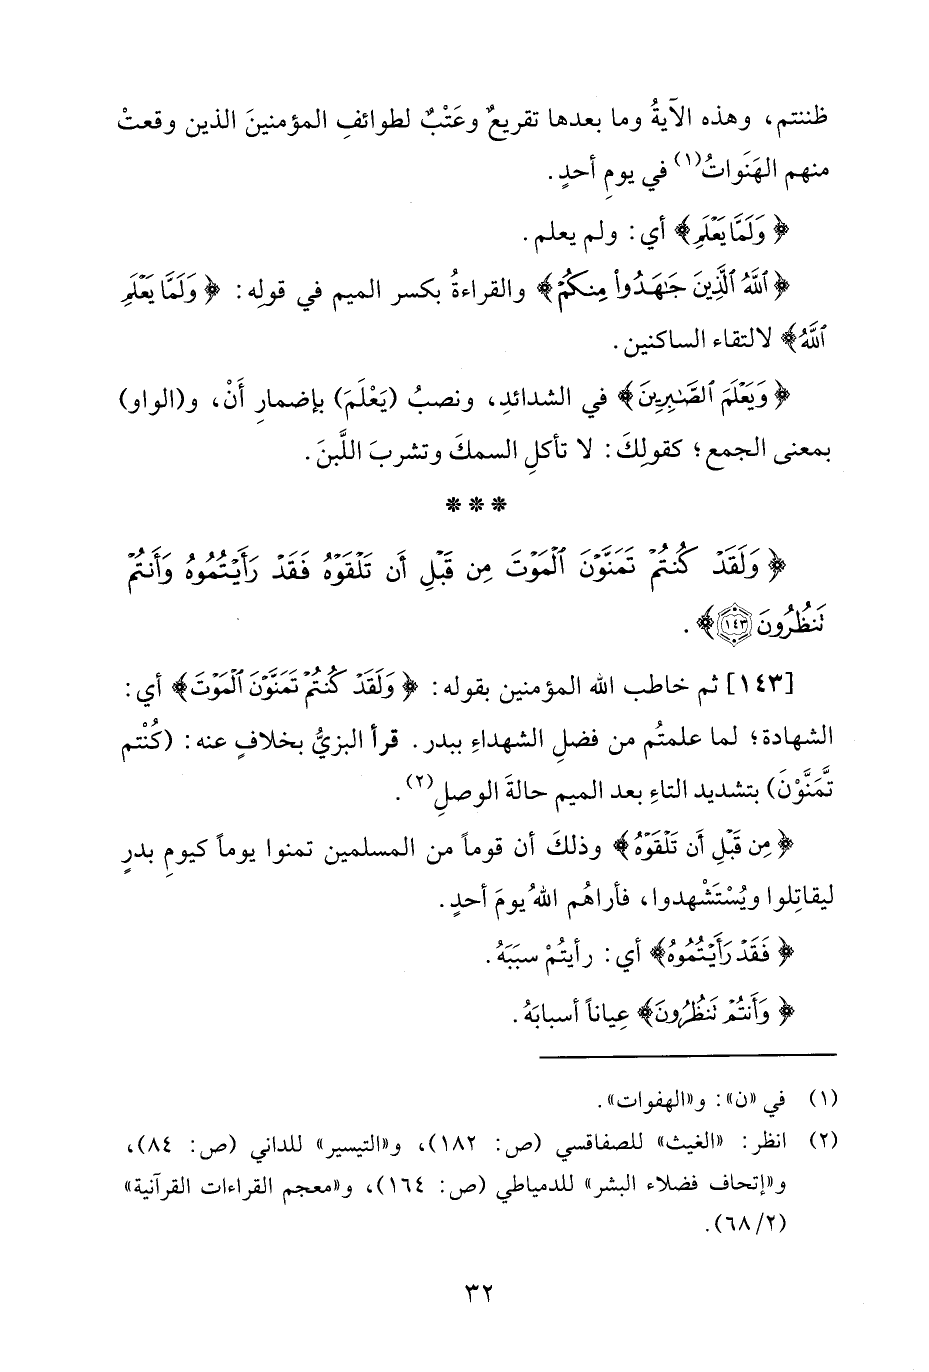 ظننتم، وهذه الآيةُ وما بعدها تقريعٌ وعَتْبٌ لطوائفِ المؤمنينَ الذين وقعتْ
منهم الهَنَواتُ(١) في يومِ أحدٍ.
﴿وَلَمَّا يَعْلَمِ﴾ أي: ولم يعلم.
﴿ٱللَّهُ ٱلَّذِينَ جَٰهَدُوا۟ مِنكُمْ﴾ والقراءةُ بكسر الميم في قولِه: ﴿وَلَمَّا يَعْلَمِ
ٱللَّهُ﴾ لالتقاء الساكنين.
﴿وَيَعْلَمَ ٱلصَّٰبِرِينَ﴾ في الشدائدِ، ونصبُ (يَعْلَمَ) بإضمارِ أَنْ، و(الواو)
بمعنى الجمع؛ كقولِكَ: لا تأكلِ السمكَ وتشربَ اللَّبنَ.
***
﴿وَلَقَدْ كُنتُمْ تَمَنَّوْنَ ٱلْمَوْتَ مِن قَبْلِ أَن تَلْقَوْهُ فَقَدْ رَأَيْتُمُوهُ وَأَنتُمْ
تَنظُرُونَ ١٤٣﴾.
[١٤٣] ثم خاطب الله المؤمنين بقوله: ﴿وَلَقَدْ كُنتُمْ تَمَنَّوْنَ ٱلْمَوْتَ﴾ أي:
الشهادة؛ لما علمتُم من فضلِ الشهداءِ ببدر. قرأ البزيُّ بخلافٍ عنه: (كُنْتم
تَّمَنَّوْنَ) بتشديد التاءِ بعد الميم حالةَ الوصلِ(٢).
﴿مِن قَبْلِ أَن تَلْقَوْهُ﴾ وذلكَ أن قوماً من المسلمين تمنوا يوماً كيومِ بدرٍ
ليقاتِلوا ويُسْتَشْهدوا، فأراهُم اللهُ يومَ أحدٍ.
﴿فَقَدْ رَأَيْتُمُوهُ﴾ أي: رأيتُمْ سبَبَهُ.
﴿وَأَنتُمْ تَنظُرُونَ﴾ عِياناً أسبابَهُ.
(١) في «ن»: و«الهفوات».
(٢) انظر: «الغيث» للصفاقسي (ص: ١٨٢)، و«التيسير» للداني (ص: ٨٤)،
و«إتحاف فضلاء البشر» للدمياطي (ص: ١٦٤)، و«معجم القراءات القرآنية»
(٢/ ٦٨).
٣٢